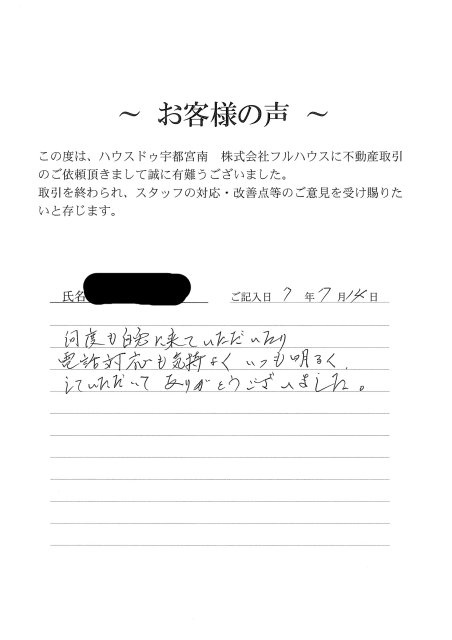 ～ お客様の声 ～
この度は、ハウスドゥ宇都宮南　株式会社フルハウスに不動産取引
のご依頼頂きまして誠に有難うございました。
取引を終わられ、スタッフの対応・改善点等のご意見を受け賜りた
いと存じます。
氏名
ご記入日 7 年 7 月 14 日
何度も自宅に来ていただいたり
電話対応も気持よく いつも明るく
していただいて ありがとうございました。